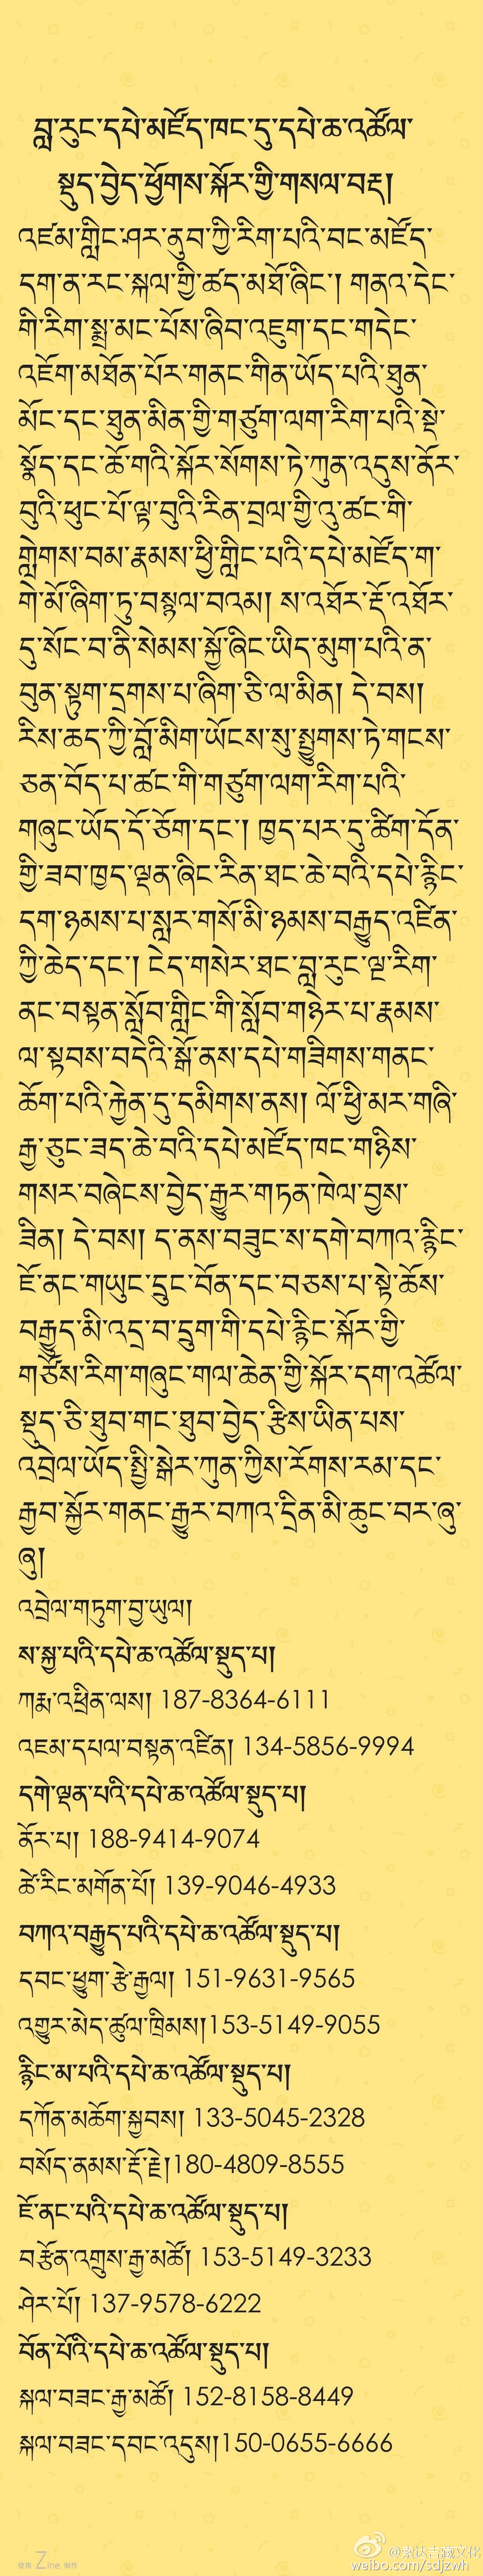 བླ་རུང་དཔེ་མཛོད་ཁང་དུ་དཔེ་ཆ་འཚོལ་
སྡུད་བྱེད་ཕྱོགས་སྐོར་གྱི་གསལ་བརྡ།
འཛམ་གླིང་ཤར་ནུབ་ཀྱི་རིག་པའི་བང་མཛོད་
དག་ན་རང་སྐལ་གྱི་ཚད་མཐོ་ཞིང་། གནའ་དེང་
གི་རིག་སྨྲ་མང་པོས་ཞིབ་འཇུག་དང་གདེང་
འཇོག་མཐོན་པོར་གནང་གིན་ཡོད་པའི་ཐུན་
མོང་དང་ཐུན་མིན་གྱི་གཙུག་ལག་རིག་པའི་སྡེ་
སྣོད་དང་ཆོ་གའི་སྐོར་སོགས་ཏེ་ཀུན་འདུས་ནོར་
བུའི་ཕུང་པོ་ལྟ་བུའི་རིན་བྲལ་གྱི་འུ་ཚང་གི་
གླེགས་བམ་རྣམས་ཕྱི་གླིང་པའི་དཔེ་མཛོད་ག་
གེ་མོ་ཞིག་ཏུ་བསྙལ་བའམ། ས་འཐོར་རྡོ་འཐོར་
དུ་སོང་བ་ནི་སེམས་སྐྱོ་ཞིང་ཡིད་མུག་པའི་ན་
བུན་སྟུག་དྲགས་པ་ཞིག་ཅི་ལ་མིན། དེ་བས།
རིས་ཆད་ཀྱི་བློ་མིག་ཡོངས་སུ་སྤྱུགས་ཏེ་གངས་
ཅན་བོད་པ་ཚང་གི་གཙུག་ལག་རིག་པའི་
གཞུང་ཡོད་དོ་ཅོག་དང་། ཁྱད་པར་དུ་ཚིག་དོན་
གྱི་ཟབ་ཁྱད་ལྡན་ཞིང་རིན་ཐང་ཆེ་བའི་དཔེ་རྙིང་
དག་ཉམས་པ་སླར་གསོ་མི་ཉམས་བརྒྱུད་འཛིན་
ཀྱི་ཆེད་དང་། ངེད་གསེར་ཐང་བླ་རུང་ལྔ་རིག་
ནང་བསྟན་སློབ་གླིང་གི་སློབ་གཉེར་པ་རྣམས་
ལ་སྟབས་བདེའི་སྒོ་ནས་དཔེ་གཟིགས་གནང་
ཆོག་པའི་རྐྱེན་དུ་དམིགས་ནས། ལོ་ཕྱི་མར་གཞི་
རྒྱ་ཅུང་ཟད་ཆེ་བའི་དཔེ་མཛོད་ཁང་གཉིས་
གསར་བཞེངས་བྱེད་རྒྱུར་གཏན་ཁེལ་བྱས་
ཟིན། དེ་བས། ད་ནས་བཟུང་ས་དགེ་བཀའ་རྙིང་
ཇོ་ནང་གཡུང་དྲུང་བོན་དང་བཅས་པ་སྟེ་ཆོས་
བརྒྱུད་མི་འདྲ་བ་དྲུག་གི་དཔེ་རྙིང་སྐོར་གྱི་
གཙོས་རིག་གཞུང་གལ་ཆེན་གྱི་སྐོར་དག་འཚོལ་
སྡུད་ཅི་ཐུབ་གང་ཐུབ་བྱེད་རྩིས་ཡིན་པས་
འབྲེལ་ཡོད་སྤྱི་སྒེར་ཀུན་ཀྱིས་རོགས་རམ་དང་
རྒྱབ་སྐྱོར་གནང་རྒྱུར་བཀའ་དྲིན་མི་ཆུང་བར་ཞུ་
ཞུ།
འབྲེལ་གཏུག་བྱ་ཡུལ།
ས་སྐྱ་པའི་དཔེ་ཆ་འཚོལ་སྡུད་པ།
ཀརྨ་འཕྲིན་ལས། 187-8364-6111
འཇམ་དཔལ་བསྟན་འཛིན། 134-5856-9994
དགེ་ལྡན་པའི་དཔེ་ཆ་འཚོལ་སྡུད་པ།
ནོར་པ། 188-9414-9074
ཚེ་རིང་མགོན་པོ། 139-9046-4933
བཀའ་བརྒྱུད་པའི་དཔེ་ཆ་འཚོལ་སྡུད་པ།
དབང་ཕྱུག་རྩེ་རྒྱལ། 151-9631-9565
འགྱུར་མེད་ཚུལ་ཁྲིམས།153-5149-9055
རྙིང་མ་པའི་དཔེ་ཆ་འཚོལ་སྡུད་པ།
དཀོན་མཆོག་སྐྱབས། 133-5045-2328
བསོད་ནམས་རྡོ་རྗེ།180-4809-8555
ཇོ་ནང་པའི་དཔེ་ཆ་འཚོལ་སྡུད་པ།
བརྩོན་འགྲུས་རྒྱ་མཚོ། 153-5149-3233
ཤེར་པོ། 137-9578-6222
བོན་པོའི་དཔེ་ཆ་འཚོལ་སྡུད་པ།
སྐལ་བཟང་རྒྱ་མཚོ། 152-8158-8449
སྐལ་བཟང་དབང་འདུས།150-0655-6666
使用 Zine 制作
@索达吉藏文化
weibo.com/sdjzwh